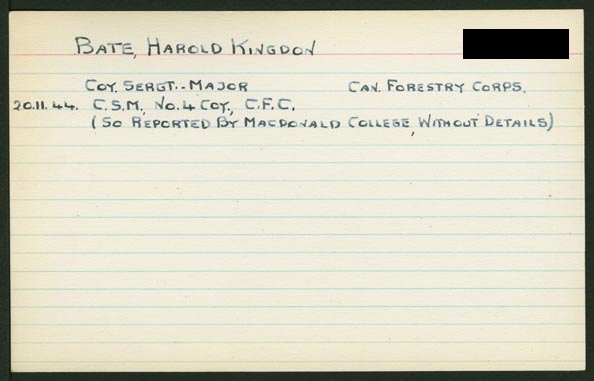 BATE, HAROLD KINGDON
COY. SERGT.-MAJOR CAN. FORESTRY CORPS.
20.11.44. C.S.M., NO. 4 COY., C.F.C.
(SO REPORTED BY MACDONALD COLLEGE, WITHOUT DETAILS)